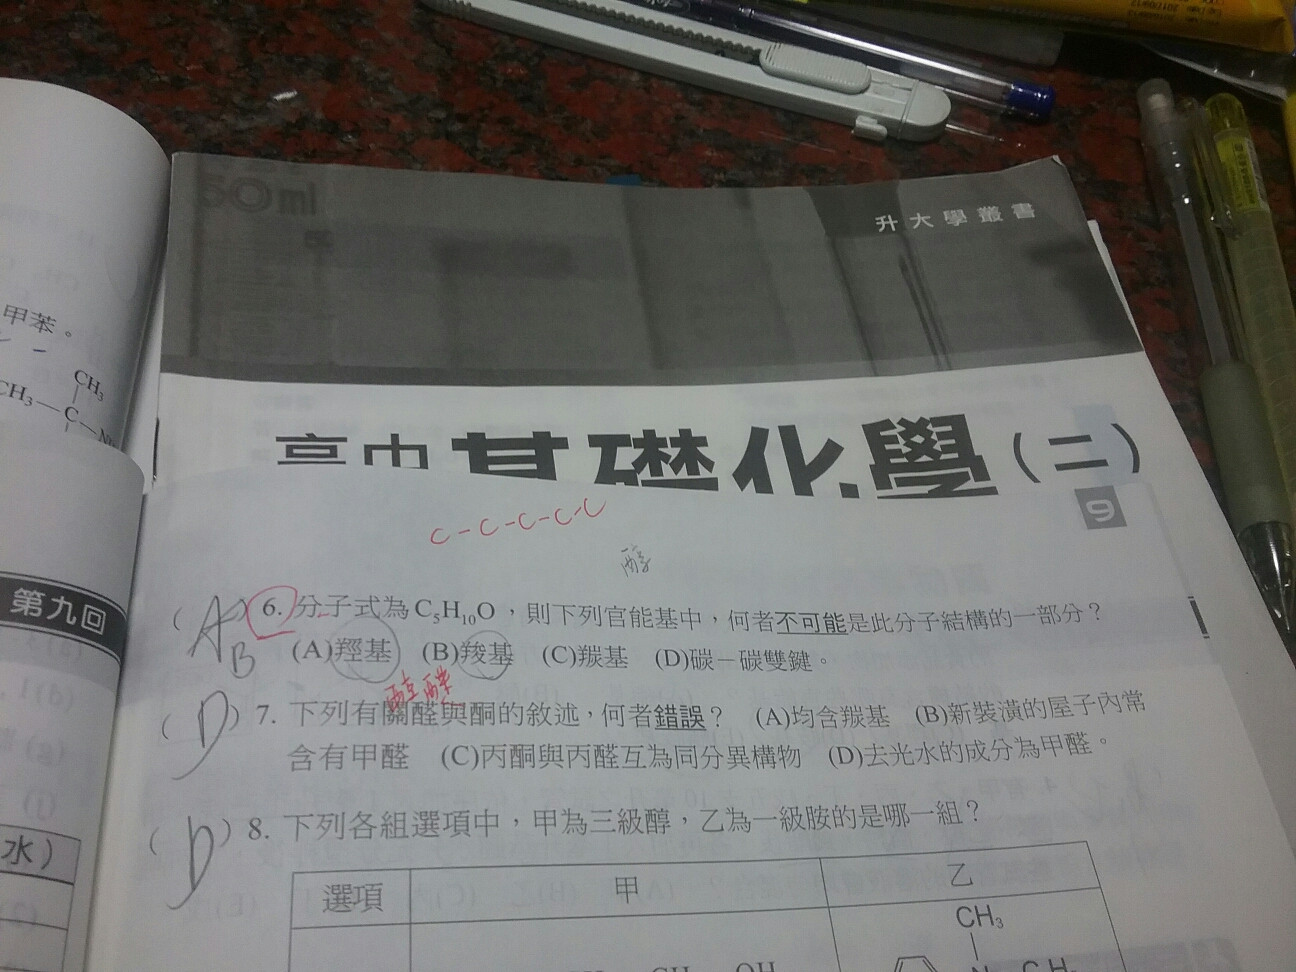 50ml
升大學叢書
甲苯。
CH₃
CH₃—C—N
高中基礎化學(二)
9
C-C-C-C-C
醇
第九回
(A) 6. 分子式為C₅H₁₀O，則下列官能基中，何者不可能是此分子結構的一部分？
B (A)羥基 (B)羧基 (C)羰基 (D)碳－碳雙鍵。
酮 醛
(D) 7. 下列有關醛與酮的敘述，何者錯誤？ (A)均含羰基 (B)新裝潢的屋子內常
含有甲醛 (C)丙酮與丙醛互為同分異構物 (D)去光水的成分為甲醛。
(D) 8. 下列各組選項中，甲為三級醇，乙為一級胺的是哪一組？
水)
選項 甲 乙
CH₃